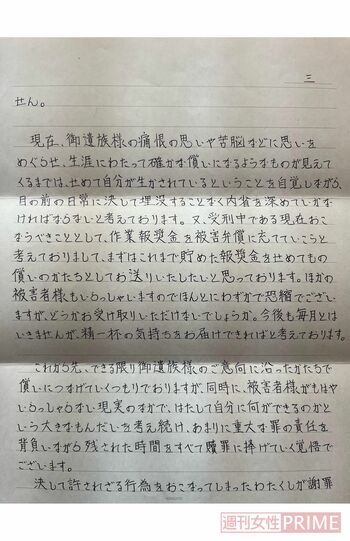 三
せん。
現在、御遺族様の痛恨の思いや苦脳などに思いを
めぐらせ、生涯にわたって確かな償いになるようなものが見えて
くるまでは、せめて自分が生かされているということを自覚しながら、
目の前の日常に決して埋没することなく内省を深めていかな
ければならないと考えております。又、受刑中である現在おこ
なうべきこととして、作業報奨金を被害弁償に充てていこうと
考えておりまして、まずはこれまで貯めた報奨金をせめてもの
償いのかたちとしてお送りいたしたいと思っております。ほかの
被害者様もいらっしゃいますのでほんとにわずかで恐縮でござい
ますが、どうかお受け取りいただけないでしょうか。今後も毎月とは
いきませんが、精一杯の気持ちをお届けできればと考えております。
これから先、できる限り御遺族様のご意向に沿ったかたちで
償いにつなげていくつもりでおりますが、同時に、被害者様がもはや
いらっしゃらない現実のなかで、はたして自分に何ができるのかと
いう大きなもんだいを考え続け、あまりに重大な罪の責任を
背負いながら残された時間をすべて贖罪に捧げていく覚悟で
ございます。
決して許されざる行為をおこなってしまったわたくしが謝罪
週刊女性PRIME